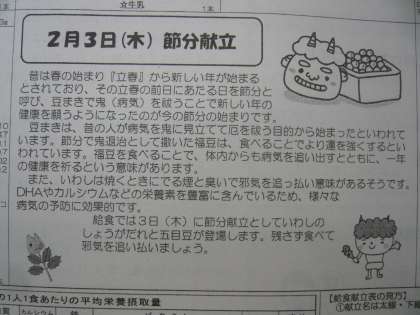 女生乳
2月3日(木) 節分献立
昔は春の始まり『立春』から新しい年が始まる
とされており、その立春の前日にあたる日を節分と
呼び、豆まきで鬼（病気）を祓うことで新しい年の
健康を願うようになったのが今の節分の始まりです。
豆まきは、昔の人が病気を鬼に見立てて厄を祓う目的から始まったといわれて
います。節分で鬼退治として撒いた福豆は、食べることでより運を強くするとい
われています。福豆を食べることで、体内からも病気を追い出すとともに、一年
の健康を祈るという意味があります。
また、いわしは焼くときにでる煙と臭いで邪気を追っ払い意味があるそうです。
DHAやカルシウムなどの栄養素を豊富に含んでいるため、様々な
病気の予防に効果的です。
給食では3日（木）に節分献立としていわしの
しょうがだれと五目豆が登場します。残さず食べて
邪気を追い払いましょう。
の1人1食あたりの平均栄養摂取量
【給食献立表の見方】
①献立名は太線・下線